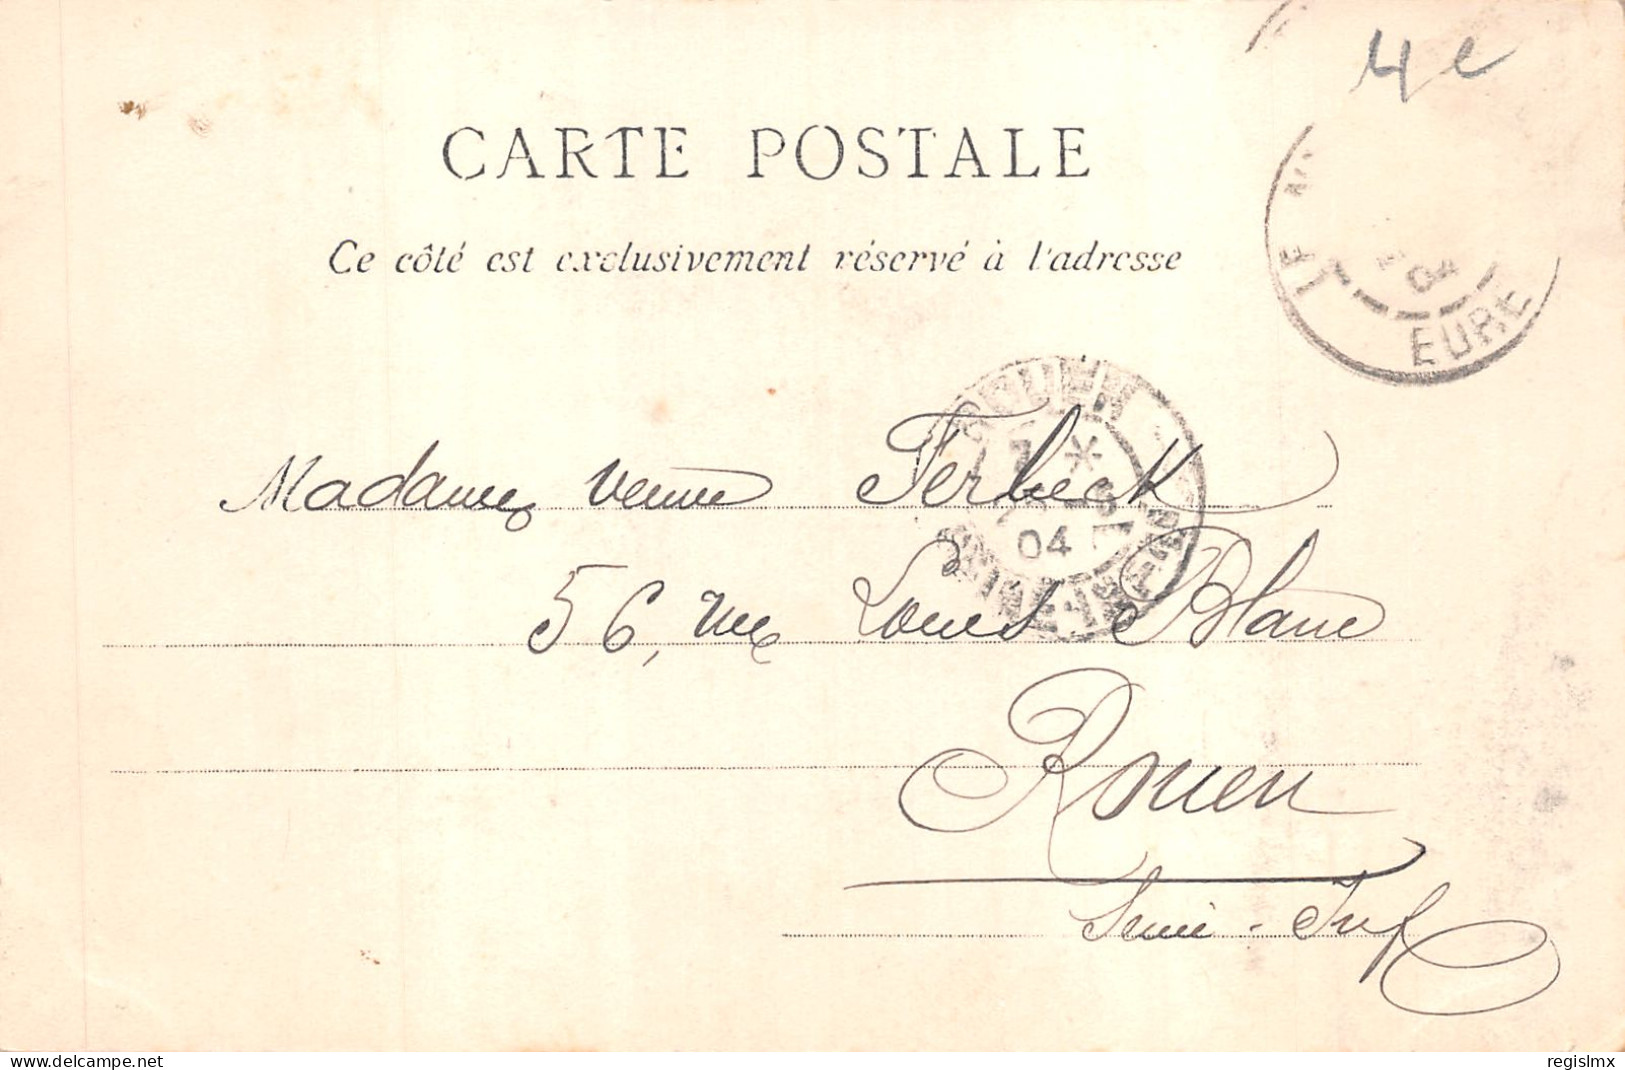 4e
CARTE POSTALE
Ce côté est exclusivement réservé à l'adresse
LE
04
EURE
ROUEN
7 *
04
SEINE-INFRE
Madame veuve Ferbeck
56, rue Louis Blanc
Rouen
Seine-Inf
delcampe.net
regislmx